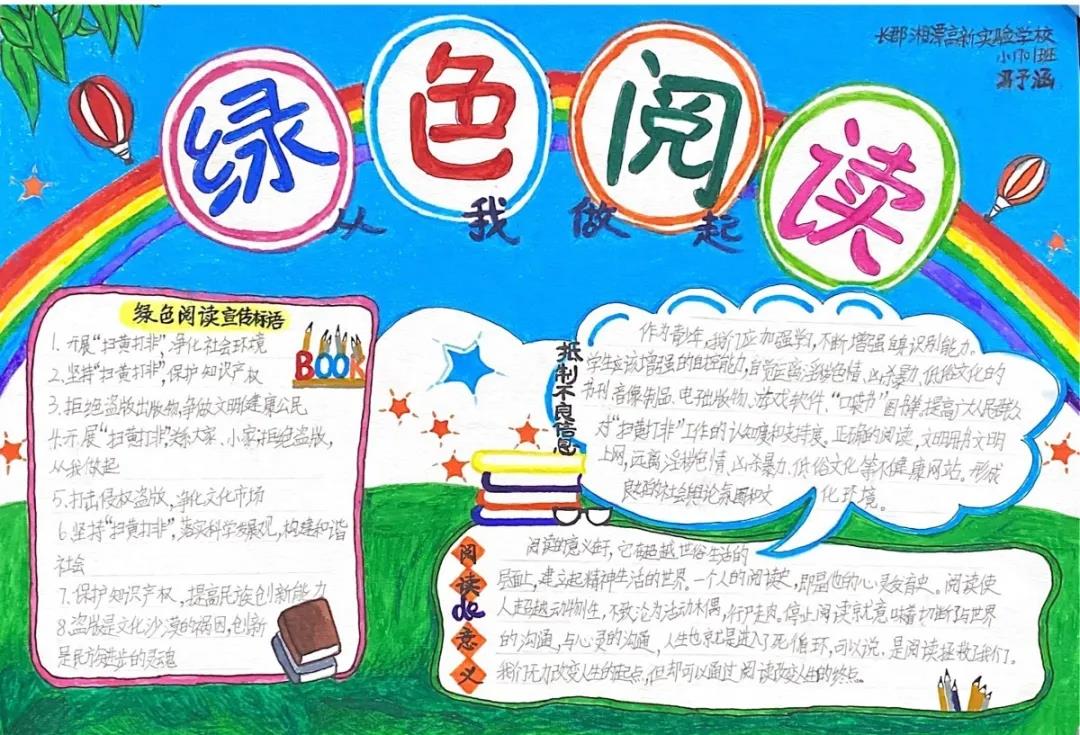 绿色阅读
从我做起
长郡湘潭高新实验学校
小1701班
予涵
绿色阅读宣传标语
1. 开展“扫黄打非”,净化社会环境
2. 坚持“扫黄打非”,保护知识产权
3. 拒绝盗版出版物,争做文明健康公民
4. 开展“扫黄打非”关系大家、小家;拒绝盗版,
从我做起
5. 打击侵权盗版,净化文化市场
6. 坚持“扫黄打非”,落实科学发展观,构建和谐
社会
7. 保护知识产权,提高民族创新能力
8. 盗版是文化沙漠的祸因,创新
是民族进步的灵魂
BOOK
抵制不良信息
作为青少年,我们应加强学习,不断增强自身识别能力。
学生应该增强的自控能力,自觉远离淫秽色情、凶杀暴力、低俗文化的
书刊、音像制品、电子出版物、游戏软件、“口袋书”图书等,提高广大人民群众
对“扫黄打非”工作的认知度和支持度、正确的阅读,文明用书文明
上网,远离淫秽色情、凶杀暴力、低俗文化等不健康网站。形成
良好的社会舆论氛围和文化环境。
阅读de意义
阅读的意义在于,它在超越世俗生活的
层面上,建立起精神生活的世界。一个人的阅读史,即是他的心灵发育史。阅读使
人超越动物性,不致沦为活动木偶,行尸走肉。停止阅读就意味着切断了与世界
的沟通,与心灵的沟通,人生也就是进入了死循环,可以说,是阅读拯救了我们。
我们无力改变人生的起点,但却可以通过阅读改变人生的终点。